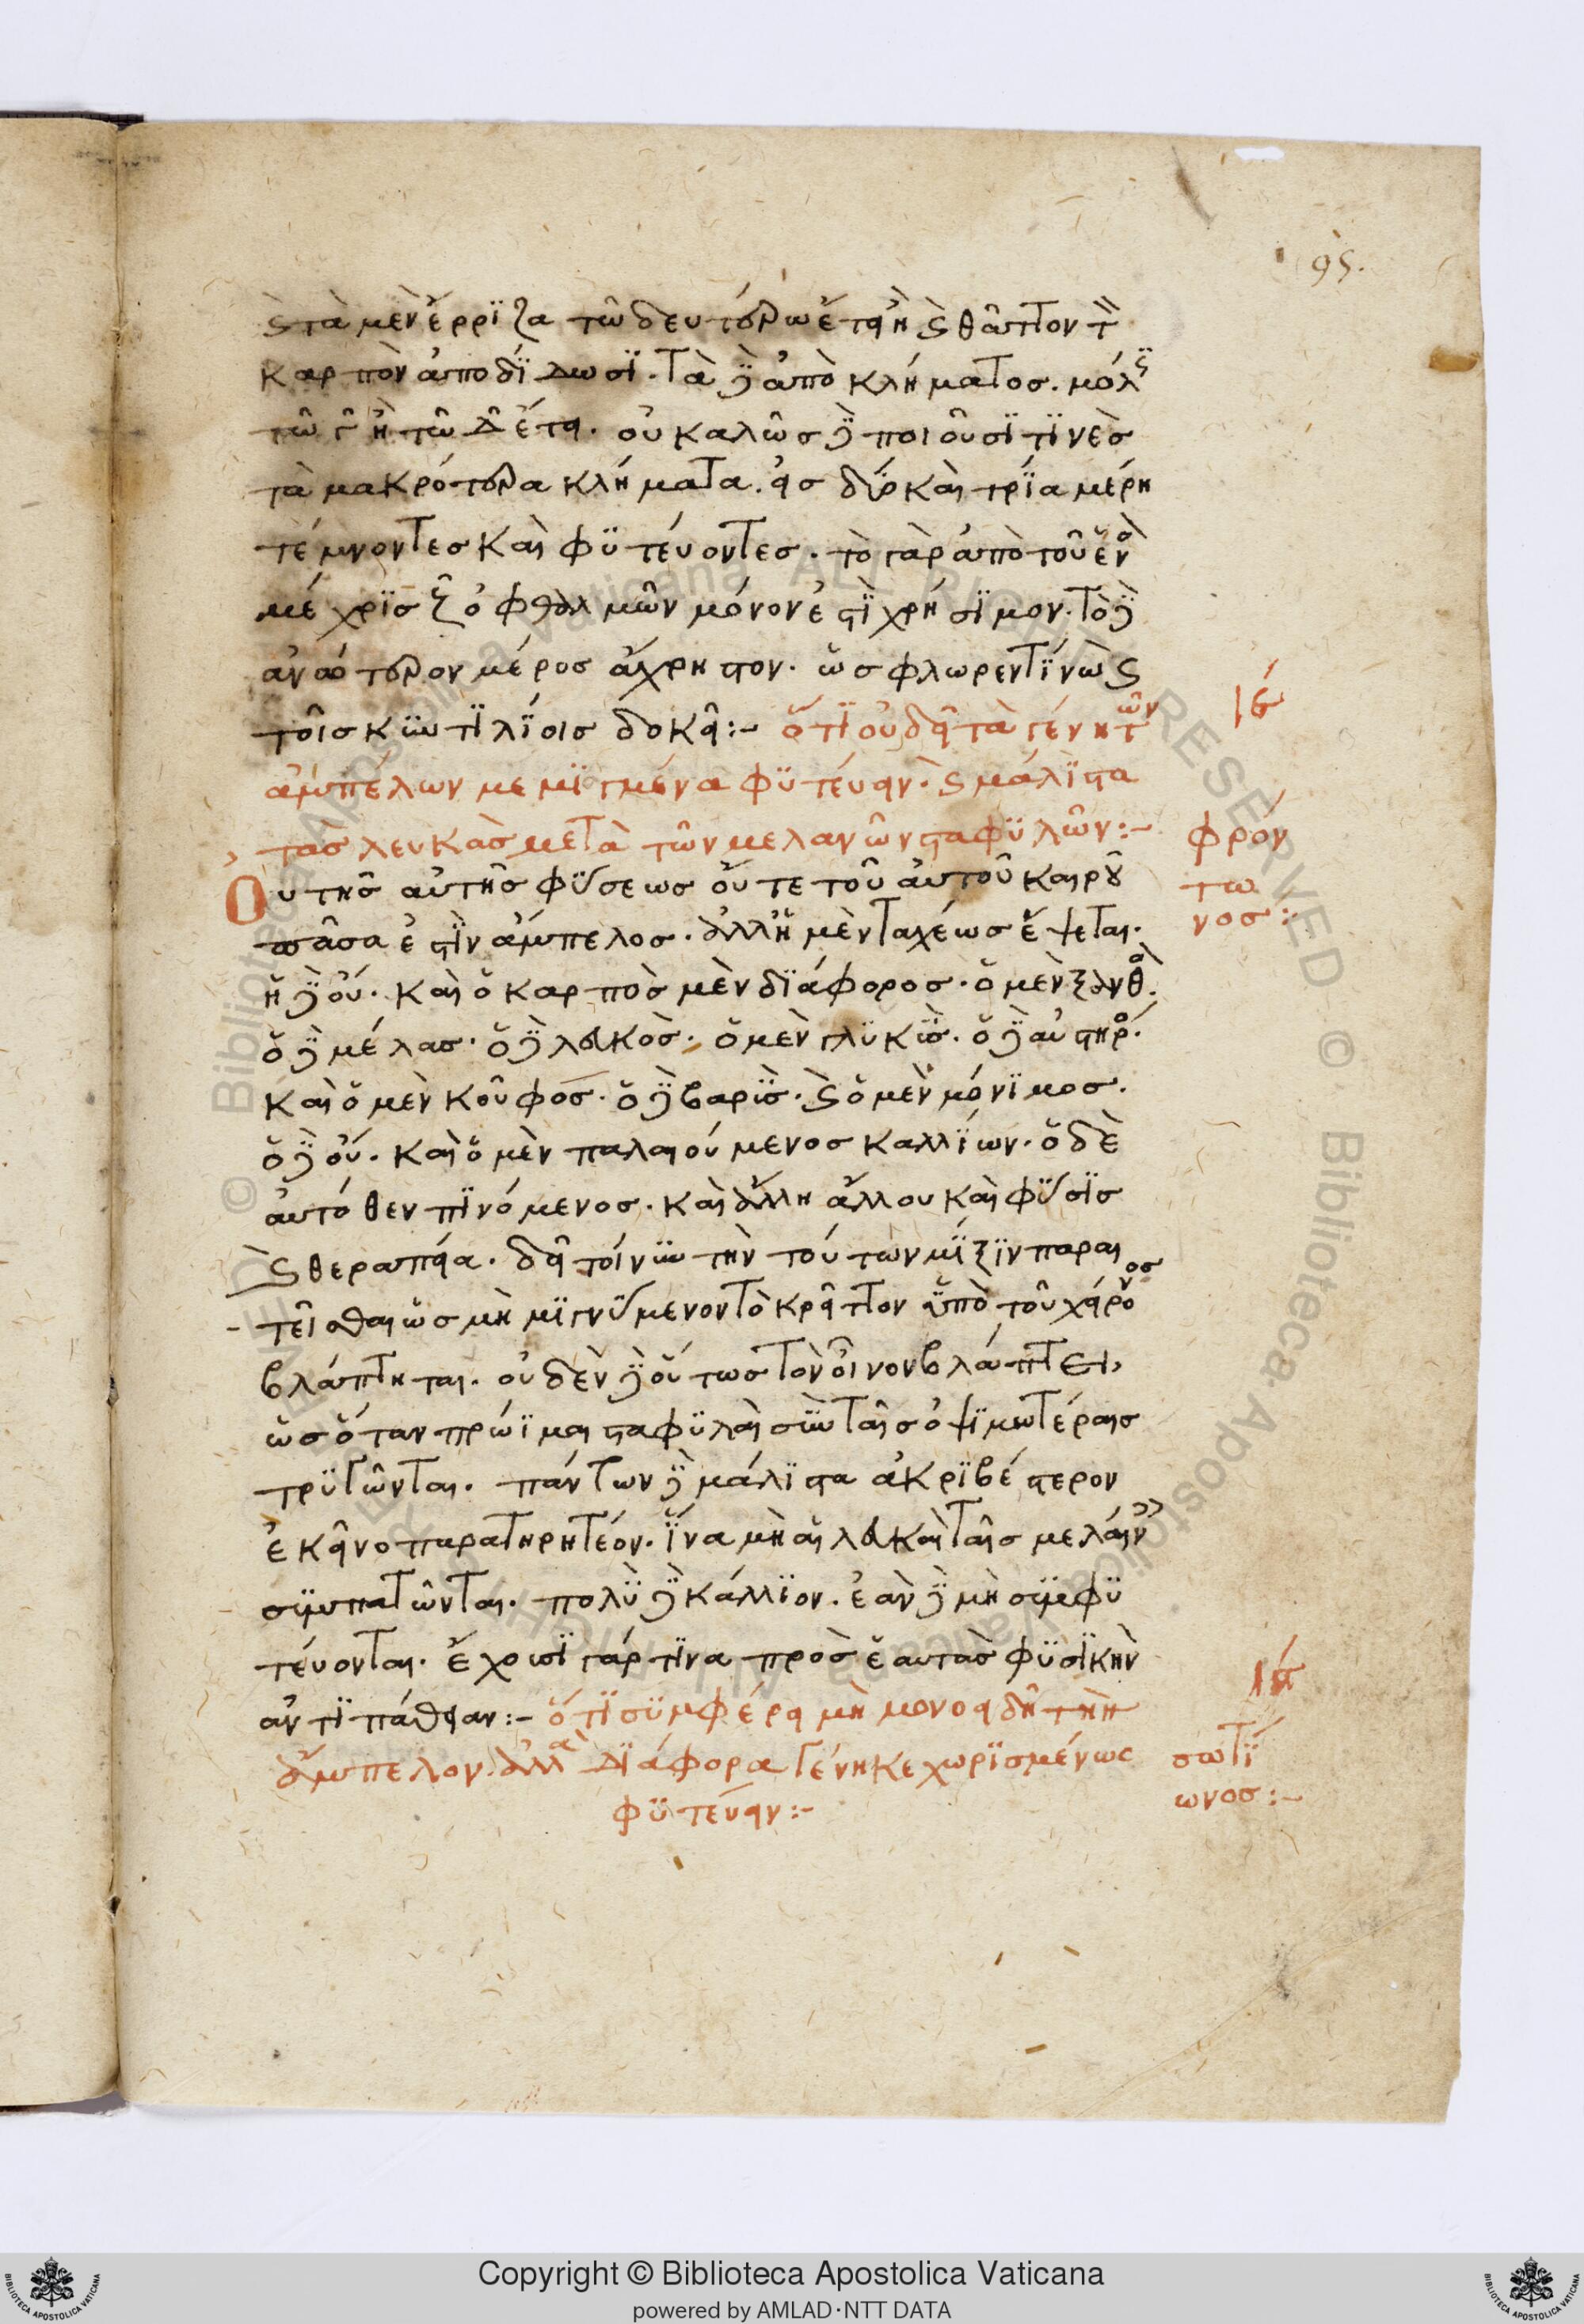 95.
καὶ τὰ μὲν ἔρριζα τῶ δευτέρω ἔτει ἢ καὶ θᾶττον τὸν
καρπὸν ἀποδίδωσι. τὰ δὲ ἀπὸ κλήματος. μόλις
τῶ γ ἢ τῶ δ ἔτει. οὐ καλῶς δὲ ποιοῦσι τινὲς
τὰ μακρότερα κλήματα. εἰς δύο καὶ τρία μέρη
τέμνοντες καὶ φυτεύοντες. τὸ γὰρ ἀπὸ τοῦ ἔνου
μέχρις ζ ὀφθαλμῶν μόνον ἐστὶ χρήσιμον. τὸ δὲ
ἀνώτερον μέρος ἄχρηστον. ὡς φλωρεντίνω καὶ
τοῖς κυντιλίοις δοκεῖ:– ὅτι οὐ δεῖ τὰ γένη τῶν
ιζ
ἀμπέλων μεμιγμένα φυτεύειν. καὶ μάλιστα
τὰς λευκὰς μετὰ τῶν μελανῶν σταφυλῶν:–
φρόν
τω
νος:
Οὐ τῆς αὐτῆς φύσεως οὔτε τοῦ αὐτοῦ καιροῦ
πᾶσα ἐστὶν ἄμπελος. ἀλλ' ἡ μὲν ταχέως ἕψεται.
ἡ δὲ οὔ. καὶ ὁ καρπὸς μὲν διάφορος. ὁ μὲν ξανθὸς.
ὁ δὲ μέλας. ὁ δὲ λευκὸς. ὁ μὲν γλυκὺς. ὁ δὲ αὐστηρός.
καὶ ὁ μὲν κοῦφος. ὁ δὲ βαρὺς. καὶ ὁ μὲν μόνιμος.
ὁ δὲ οὔ. καὶ ὁ μὲν παλαιούμενος καλλίων. ὁ δὲ
αὐτόθεν πινόμενος. καὶ ἄλλη ἄλλου καὶ φύσις
καὶ θεραπεία. δεῖ τοίνυν τὴν τούτων μίξιν παραι
τεῖσθαι ὡς μὴ μιγνύμενον τὸ κρεῖττον ὑπὸ τοῦ χείρονος
βλάπτηται. οὐδὲν δὲ οὕτως τὸν οἶνον βλάπτει,
ὡς ὅταν πρώϊμαι σταφυλαὶ σὺν ταῖς ὀψιμωτέραις
τρυγῶνται. πάντων δὲ μάλιστα ἀκριβέστερον
ἐκεῖνο παρατηρητέον. ἵνα μὴ αἱ λευκαὶ ταῖς μελαίναις
συμπατῶνται. πολὺ δὲ κάλλιον. ἐὰν δὲ μὴ συμφυ
τεύονται. ἔχουσι γάρ τινα πρὸς ἑαυτὰς φυσικὴν
ἀντιπάθειαν:– ὅτι συμφέρει μὴ μονοειδῆ τὴν
ιη
ἄμπελον. ἀλλὰ διάφορα γένη κεχωρισμένως
σωτί
ωνος:–
φυτεύειν:–
Copyright © Biblioteca Apostolica Vaticana
powered by AMLAD·NTT DATA